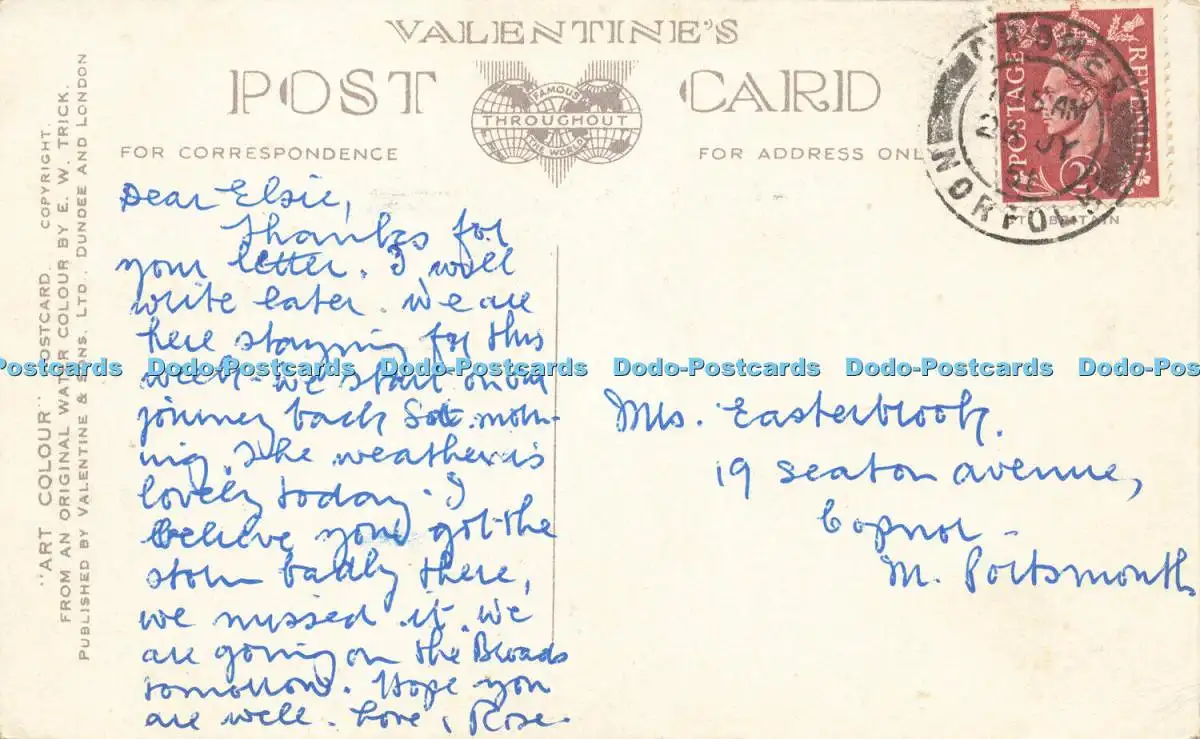 VALENTINE'S
POST CARD
FAMOUS
THROUGHOUT
THE WORLD
FOR CORRESPONDENCE
FOR ADDRESS ONL
"ART COLOUR" POSTCARD. COPYRIGHT.
FROM AN ORIGINAL WATER COLOUR BY E. W. TRICK.
PUBLISHED BY VALENTINE & SONS, LTD., DUNDEE AND LONDON
CROMER
15 AM
JY
NORFOLK
POSTAGE
REVENUE
2D
Dear Elsie,
Thanks for
your letter. I will
write later. We are
here staying for this
week - we start on our
journey back Sat. morn-
ing. The weather is
lovely today. I
believe you got the
storm badly there,
we missed it. We
are going on the Broads
tomorrow. Hope you
are well. Love, Rose.
Mrs. Easterbrook.
19 Seaton Avenue,
Copnor -
M. Portsmouth
Postcards Dodo-Postcards Dodo-Postcards Dodo-Postcards Dodo-Postcards Dodo-Pos